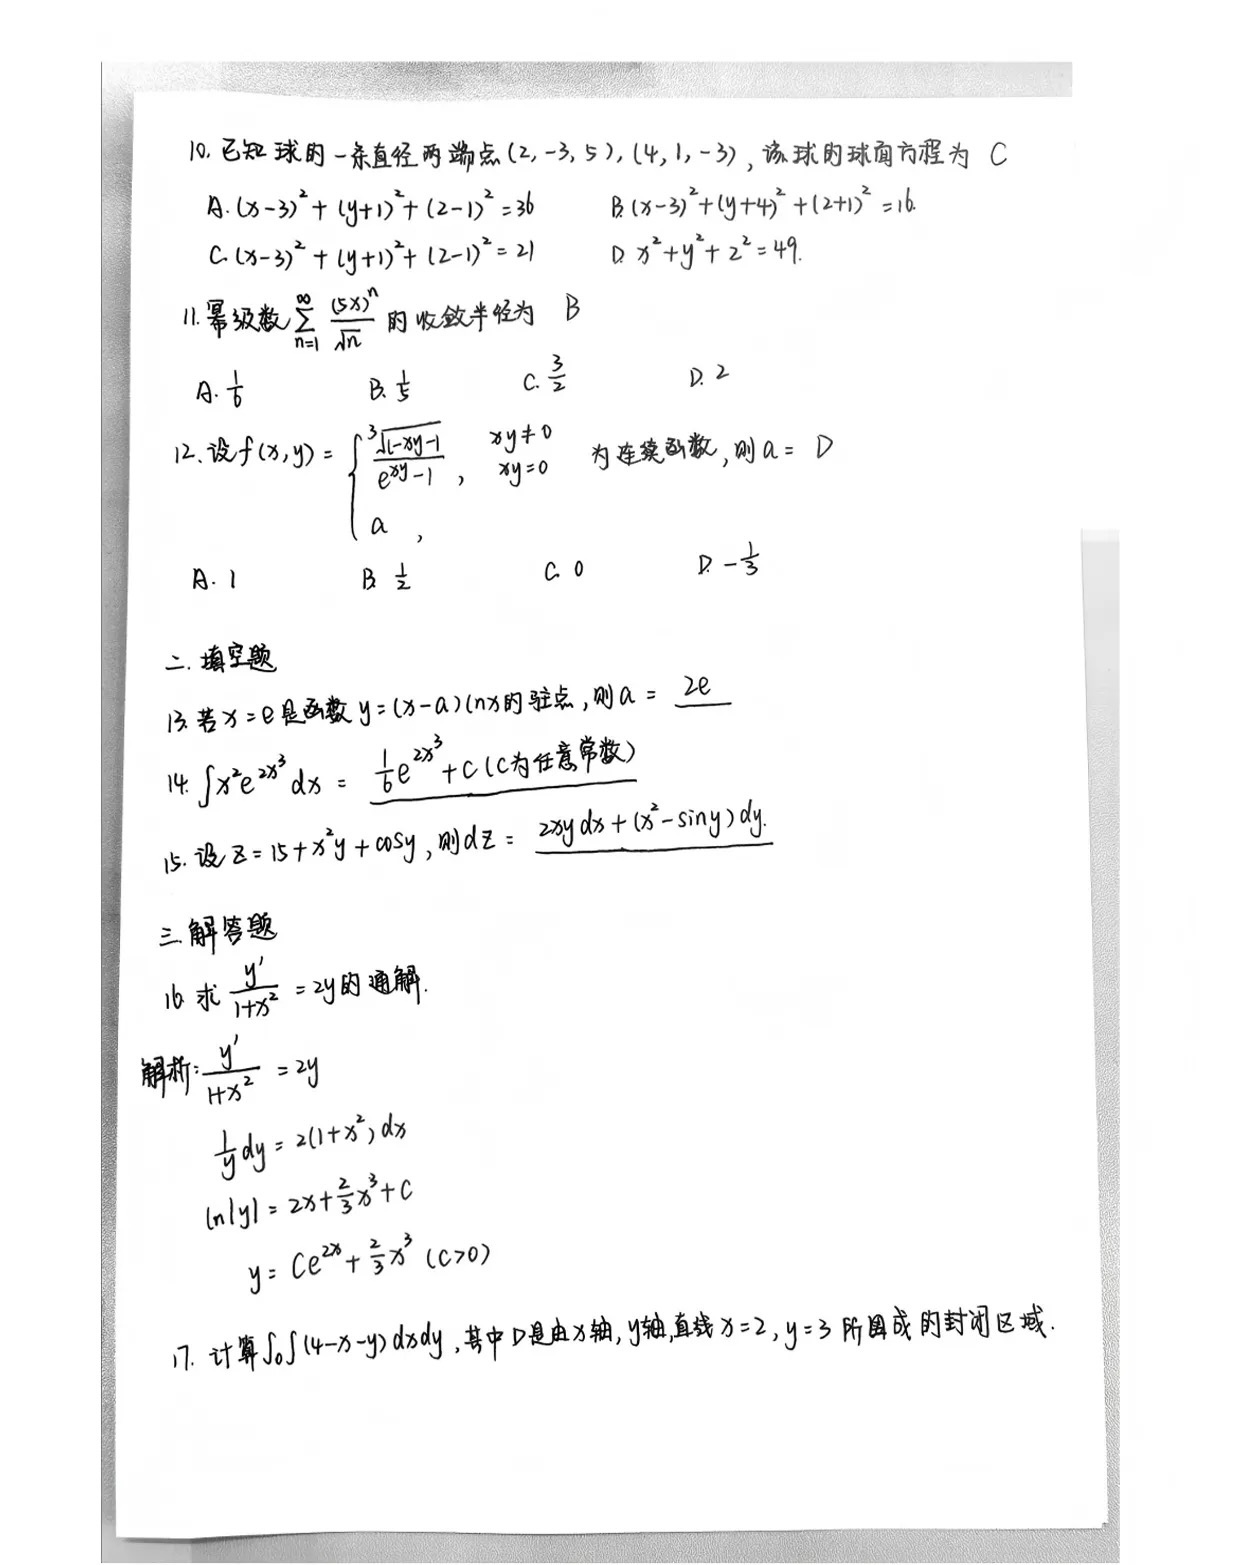 10. 已知球的一条直径两端点(2, -3, 5), (4, 1, -3), 该球的球面方程为 C
A. (x-3)² + (y+1)² + (z-1)² = 36 B. (x-3)² + (y+4)² + (z+1)² = 16.
C. (x-3)² + (y+1)² + (z-1)² = 21 D. x² + y² + z² = 49.
11. 幂级数 ∑_{n=1}^{∞} (5x)^n/√n 的收敛半径为 B
A. 1/6 B. 1/5 C. 3/2 D. 2
12. 设f(x,y) = { (∛(1-xy) -1)/(e^{xy} -1), xy≠0 为连续函数, 则a = D
a, xy=0
A. 1 B. 1/2 C. 0 D. -1/3
二. 填空题
13. 若x=e是函数y=(x-a)lnx的驻点, 则a = 2e
14. ∫x²e^{2x³}dx = 1/6 e^{2x³} + C (C为任意常数)
15. 设z=15+x²y+cosy, 则dz = 2xydx+(x²-siny)dy.
三. 解答题
16. 求 y'/(1+x²) = 2y的通解.
解析: y'/(1+x²) = 2y
1/y dy = 2(1+x²)dx
ln|y| = 2x + 2/3 x³ + C
y = Ce^{2x} + 2/3 x³ (C>0)
17. 计算∫_D∫(4-x-y)dxdy, 其中D是由x轴, y轴, 直线x=2, y=3所围成的封闭区域.